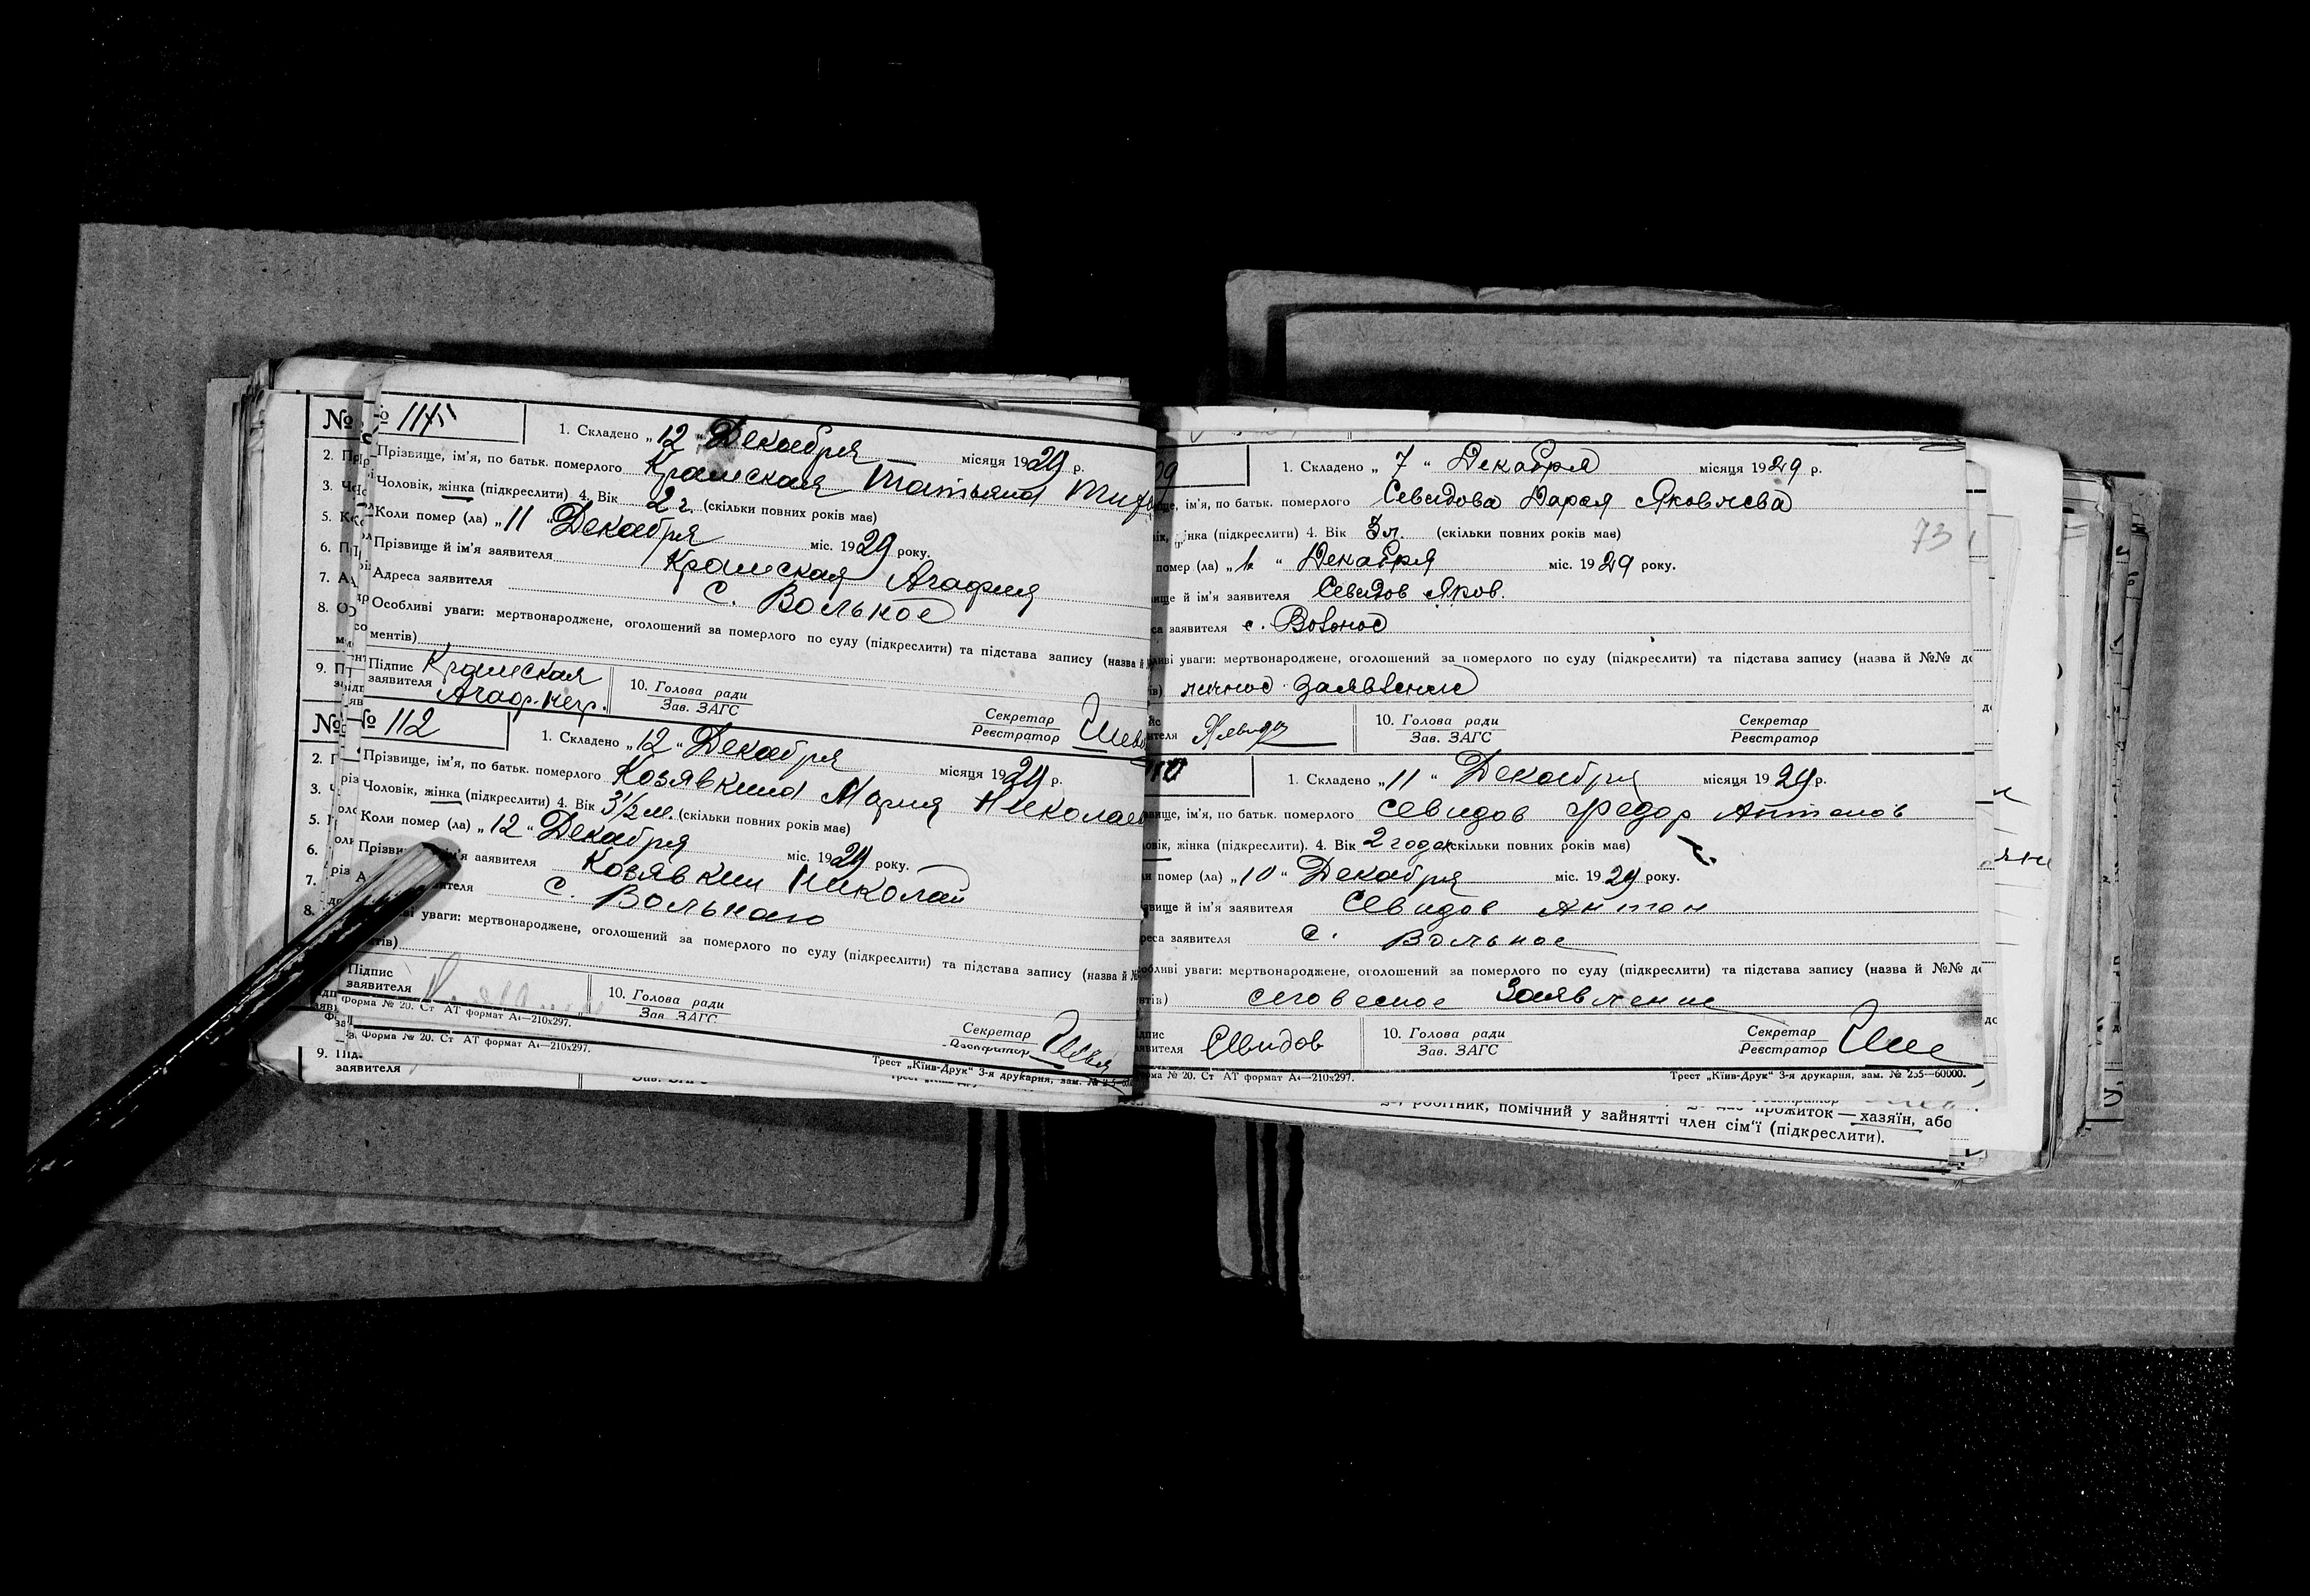 № 111
1. Складено „12" Декабря місяця 1929 р.
Прізвище, ім'я, по батьк. померлого Крамская Татьяна
Чоловік, жінка (підкреслити) 4. Вік 2 г. (скільки повних років має)
Коли помер (ла) „11" Декабря міс. 1929 року.
Прізвище й ім'я заявителя Крамская Агафия
Адреса заявителя с. Вольное
Особливі уваги: мертвонароджене, оголошений за померлого по суду (підкреслити) та підстава запису (назва й
ментів)
Підпис заявителя Крамская
10. Голова ради
Зав. ЗАГС
Секретар
Реєстратор
№ 112
1. Складено „12" Декабря місяця 1929 р.
Прізвище, ім'я, по батьк. померлого Козявкина Мария Николаев
Чоловік, жінка (підкреслити) 4. Вік 3½ м. (скільки повних років має)
Коли помер (ла) „12" Декабря міс. 1929 року.
Прізви ім'я заявителя Козявкин Николай
с. Вольного
уваги: мертвонароджене, оголошений за померлого по суду (підкреслити) та підстава запису (назва й №
Підпис
заявителя
10. Голова ради
Зав. ЗАГС
Секретар
Реєстратор
Форма № 20. Ст АТ формат А4—210х297.
Форма № 20. Ст АТ формат А4—210х297.
Трест „Київ-Друк" 3-я друкарня, зам. №
9. Підп
заявителя
09
1. Складено „7" Декабря місяця 1929 р.
ім'я, по батьк. померлого Севидова Дарая Яковлева
жінка (підкреслити) 4. Вік 3 л. (скільки повних років має)
помер (ла) Декабря міс. 1929 року.
ище й ім'я заявителя Севидов Яков.
са заявителя с. Вольное
ливі уваги: мертвонароджене, оголошений за померлого по суду (підкреслити) та підстава запису (назва й №№ до
ів) личное заявление
10. Голова ради
Зав. ЗАГС
Секретар
Реєстратор
73
110
1. Складено „11" Декабря місяця 1929 р.
вище, ім'я, по батьк. померлого Севидов Федор Антонов
овік, жінка (підкреслити). 4. Вік 2 года (скільки повних років має)
помер (ла) „10" Декабря міс. 1929 року.
вище й ім'я заявителя Севидов Антон
реса заявителя с. Вольное
обливі уваги: мертвонароджене, оголошений за померлого по суду (підкреслити) та підстава запису (назва й №№ до
нтів) словесное заявление
дпис
аявителя Севидов
10. Голова ради
Зав. ЗАГС
Секретар
Реєстратор
рма № 20. Ст АТ формат А4—210х297.
Трест „Київ-Друк" 3-я друкарня, зам. № 255—60000.
робітник, помічний у зайнятті член сім'ї (підкреслити).
прожиток — хазяїн, або